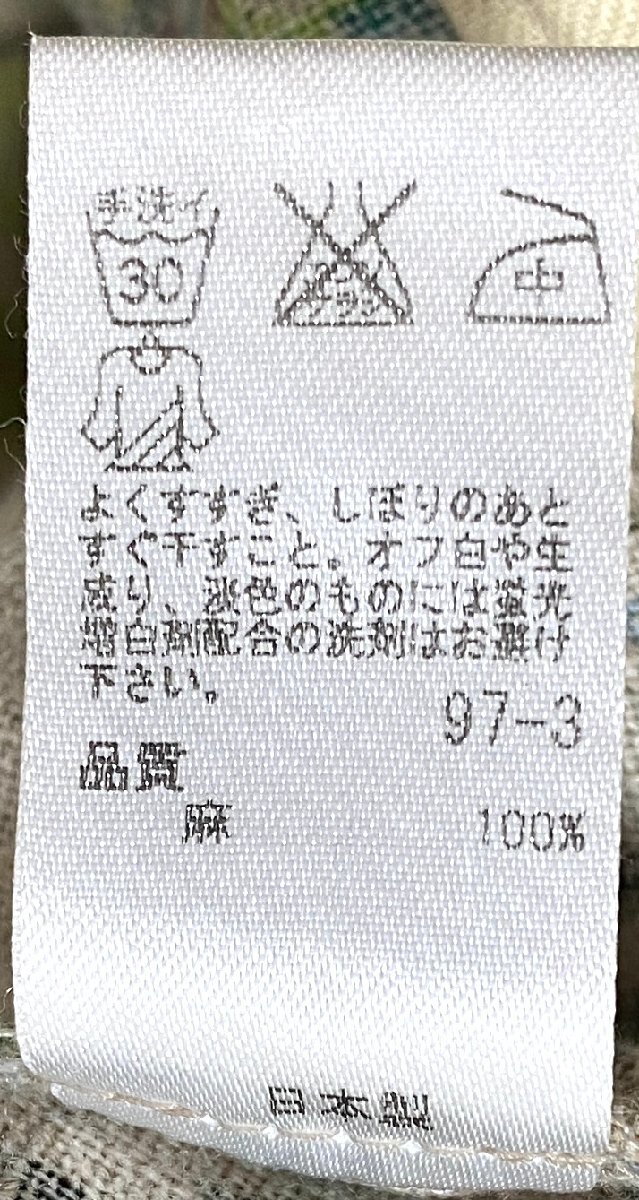 手洗イ
30
エンソサラシ
中
よくすすぎ、しぼりのあと
すぐ干すこと。オフ白や生
成り、淡色のものには蛍光
増白剤配合の洗剤はお避け
下さい。
97-3
品質
麻 100%
日本製